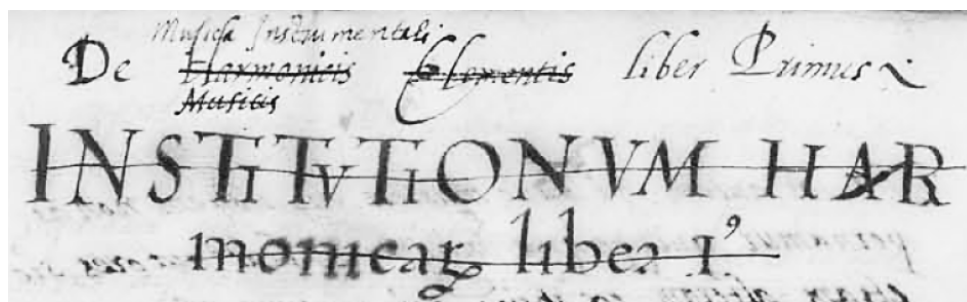 Musica Instrumentali
De Harmonicis Elementis liber Primus
Musicis
INSTITVTIONVM HAR
monicaꝝ liber 1ꝰ